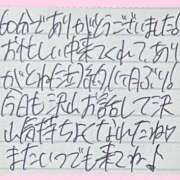 60分でありがとうございました!
お忙しい中来てくれてあり
がとね
今日も沢山お話して沢
山気持ちよくなれたね♡
またいつでも来てね♪